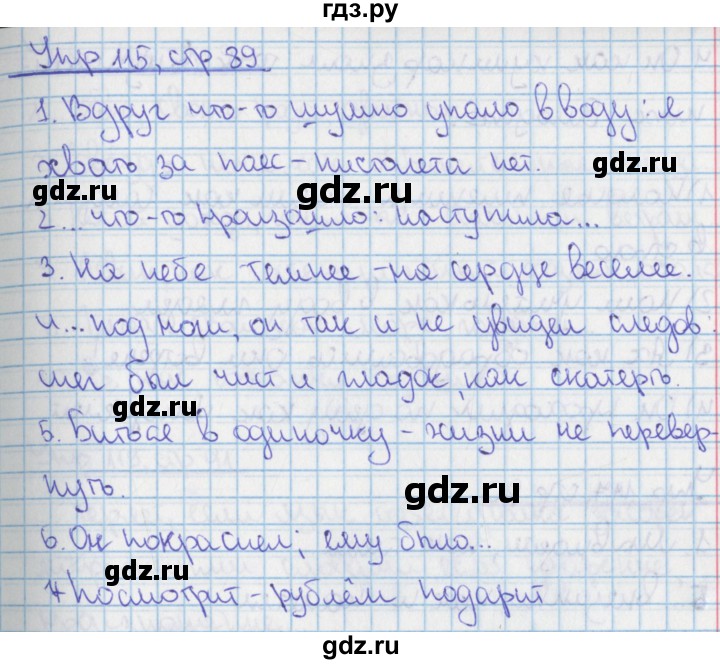 гдз.ру
Упр 115, стр 39
1. Вдруг что-то шумно упало в воду: я
хвать за пояс - пистолета нет.
gdz.ru
gdz.ru
2... что-то произошло: наступила...
3. На небе темнее - на сердце веселее.
4... под ноги, он так и не увидел следов:
снег был чист и гладок, как скатерть.
gdz.ru
5. Биться в одиночку - жизни не перевер-
нуть.
gdz.ru
6. Он покраснел; ему было...
7 Посмотрит - рублём подарит
gdz.ru
gdz.ru